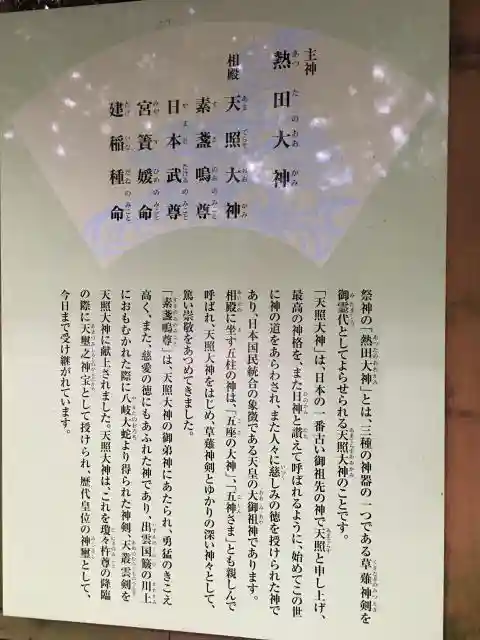 主神
熱田大神
相殿
天照大神
素盞嗚尊
日本武尊
宮簀媛命
建稲種命
祭神の「熱田大神」とは、三種の神器の一つである草薙神剣を
御霊代としてよらせられる天照大神のことです。
「天照大神」は、日本の一番古い御祖先の神で天照と申し上げ、
最高の神格を、また日神と讃えて呼ばれるように、始めてこの世
に神の道をあらわされ、また人々に慈しみの徳を授けられた神で
あり、日本国民統合の象徴である天皇の大御祖神であります。
相殿に坐す五柱の神は、「五座の大神」、「五神さま」とも親しんで
呼ばれ、天照大神をはじめ、草薙神剣とゆかりの深い神々として、
篤い崇敬をあつめてきました。
「素盞嗚尊」は、天照大神の御弟神にあたられ、勇猛のきこえ
高く、また、慈愛の徳にもあふれた神であり、出雲国簸の川上
におもむかれた際に八岐大蛇より得られた神剣、天叢雲剣を
天照大神に献上されました。天照大神は、これを瓊々杵尊の降臨
の際に天璽之神宝として授けられ、歴代皇位の神璽として、
今日まで受け継がれています。